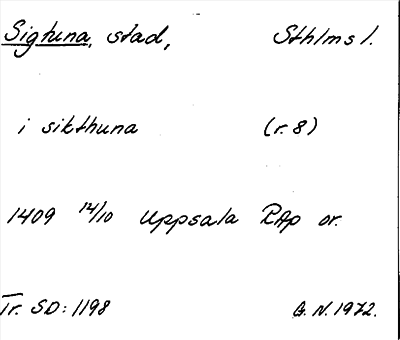 Sigtuna, stad, Sthlms l.
i sikthuna (r. 8)
1409 14/10 Uppsala RAp or.
Tr. SD: 1198 G. N. 1972.